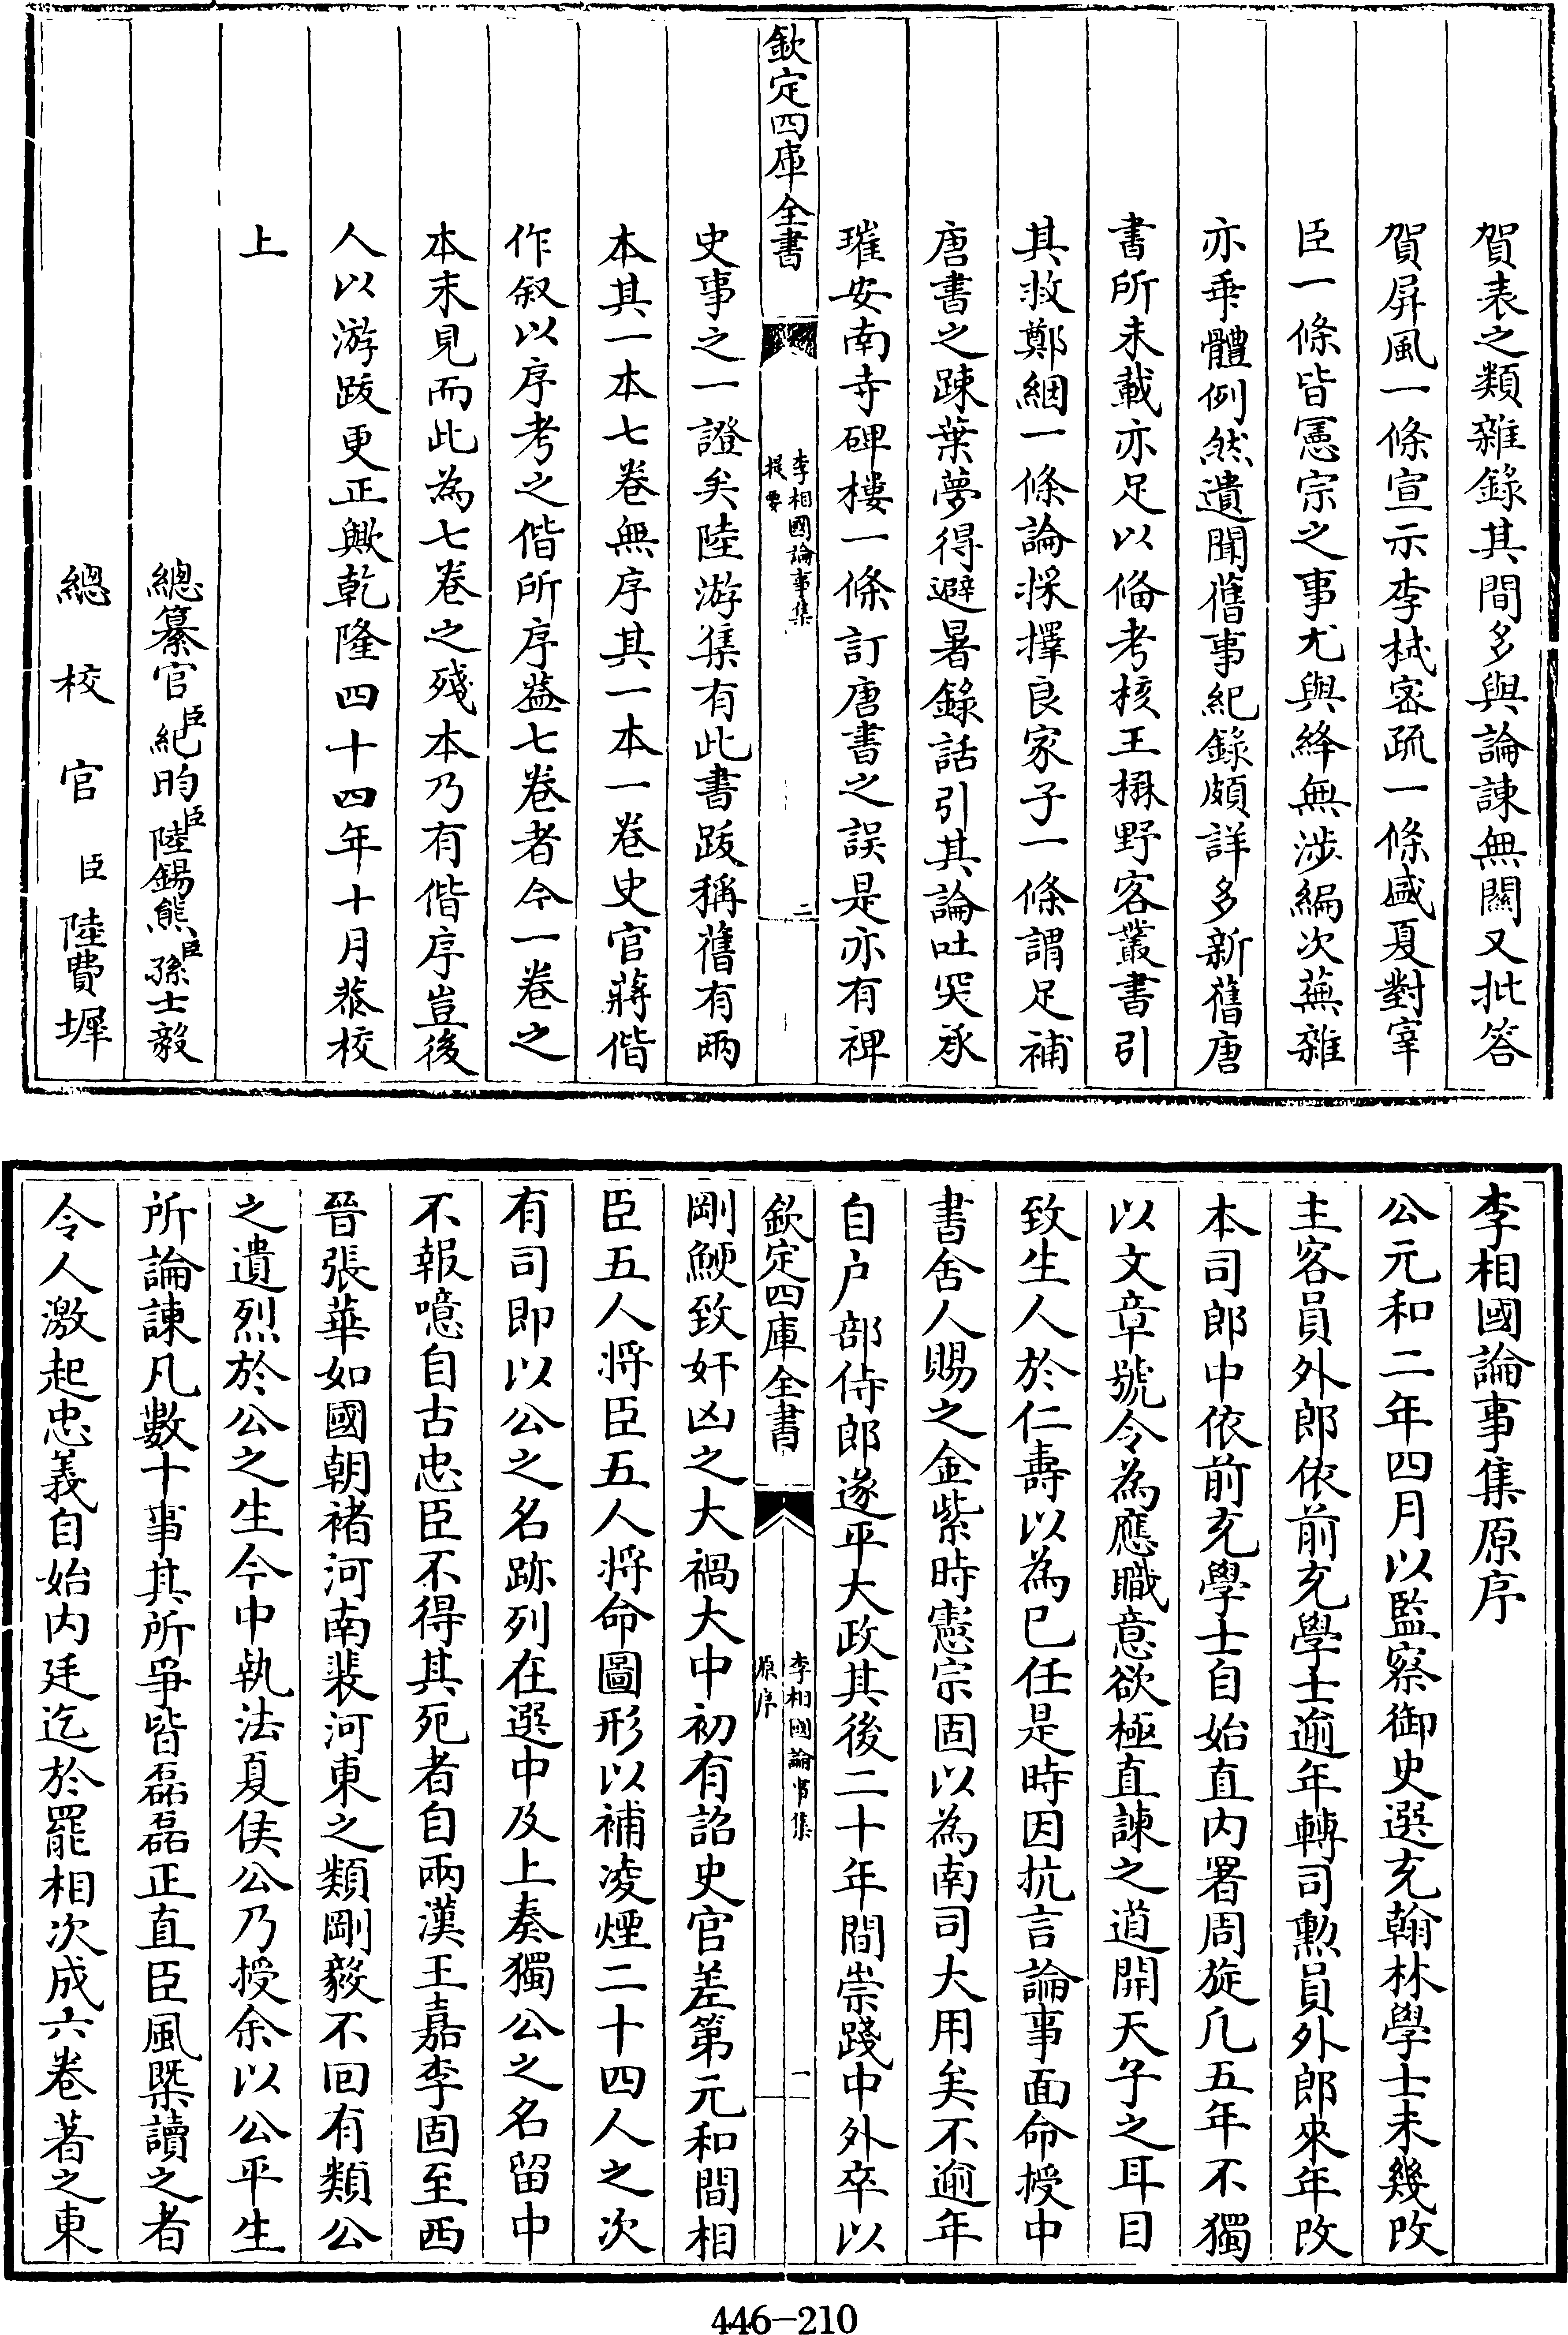 賀表之類雜錄其間多與論諫無闗又批答
賀屏風一條宣示李栻宻疏一條盛夏對宰
臣一條皆憲宗之事尤與絳無渉編次蕪雜
亦乖體例然遺聞舊事紀錄頗詳多新舊唐
書所未載亦足以備考核王楙野客叢書引
其救鄭絪一條論採擇良家子一條謂足補
唐書之踈葉夢得避暑錄話引其論吐突承
璀安南寺碑樓一條訂唐書之誤是亦有裨
欽定四庫全書
李相國論事集
提要
二
史事之一證矣陸游集有此書跋稱舊有兩
本其一本七卷無序其一本一卷史官蔣偕
作叙以序考之偕所序葢七卷者今一卷之
本未見而此為七卷之殘本乃有偕序豈後
人以游跋更正歟乾隆四十四年十月恭校
上
總纂官臣紀昀臣陸錫熊臣孫士毅
總校官臣陸費墀
李相國論事集原序
公元和二年四月以監察御史選充翰林學士未幾改
主客員外郎依前充學士逾年轉司勲員外郎來年改
本司郎中依前充學士自始直内署周旋凡五年不獨
以文章號令為應職意欲極直諫之道開天子之耳目
致生人於仁壽以為己任是時因抗言論事面命授中
書舍人賜之金紫時憲宗固以為南司大用矣不逾年
自户部侍郎遂平大政其後二十年間崇踐中外卒以
欽定四庫全書
李相國論事集
原序
一
剛鯁致奸凶之大禍大中初有詔史官差第元和間相
臣五人將臣五人將命圖形以補凌煙二十四人之次
有司即以公之名跡列在選中及上奏獨公之名留中
不報噫自古忠臣不得其死者自兩漢王嘉李固至西
晉張華如國朝褚河南裴河東之類剛毅不回有類公
之遺烈於公之生今中執法夏侯公乃授余以公平生
所論諫凡數十事其所爭皆磊磊正直臣風槩讀之者
令人激起忠義自始内廷迄於罷相次成六卷著之東
446-210